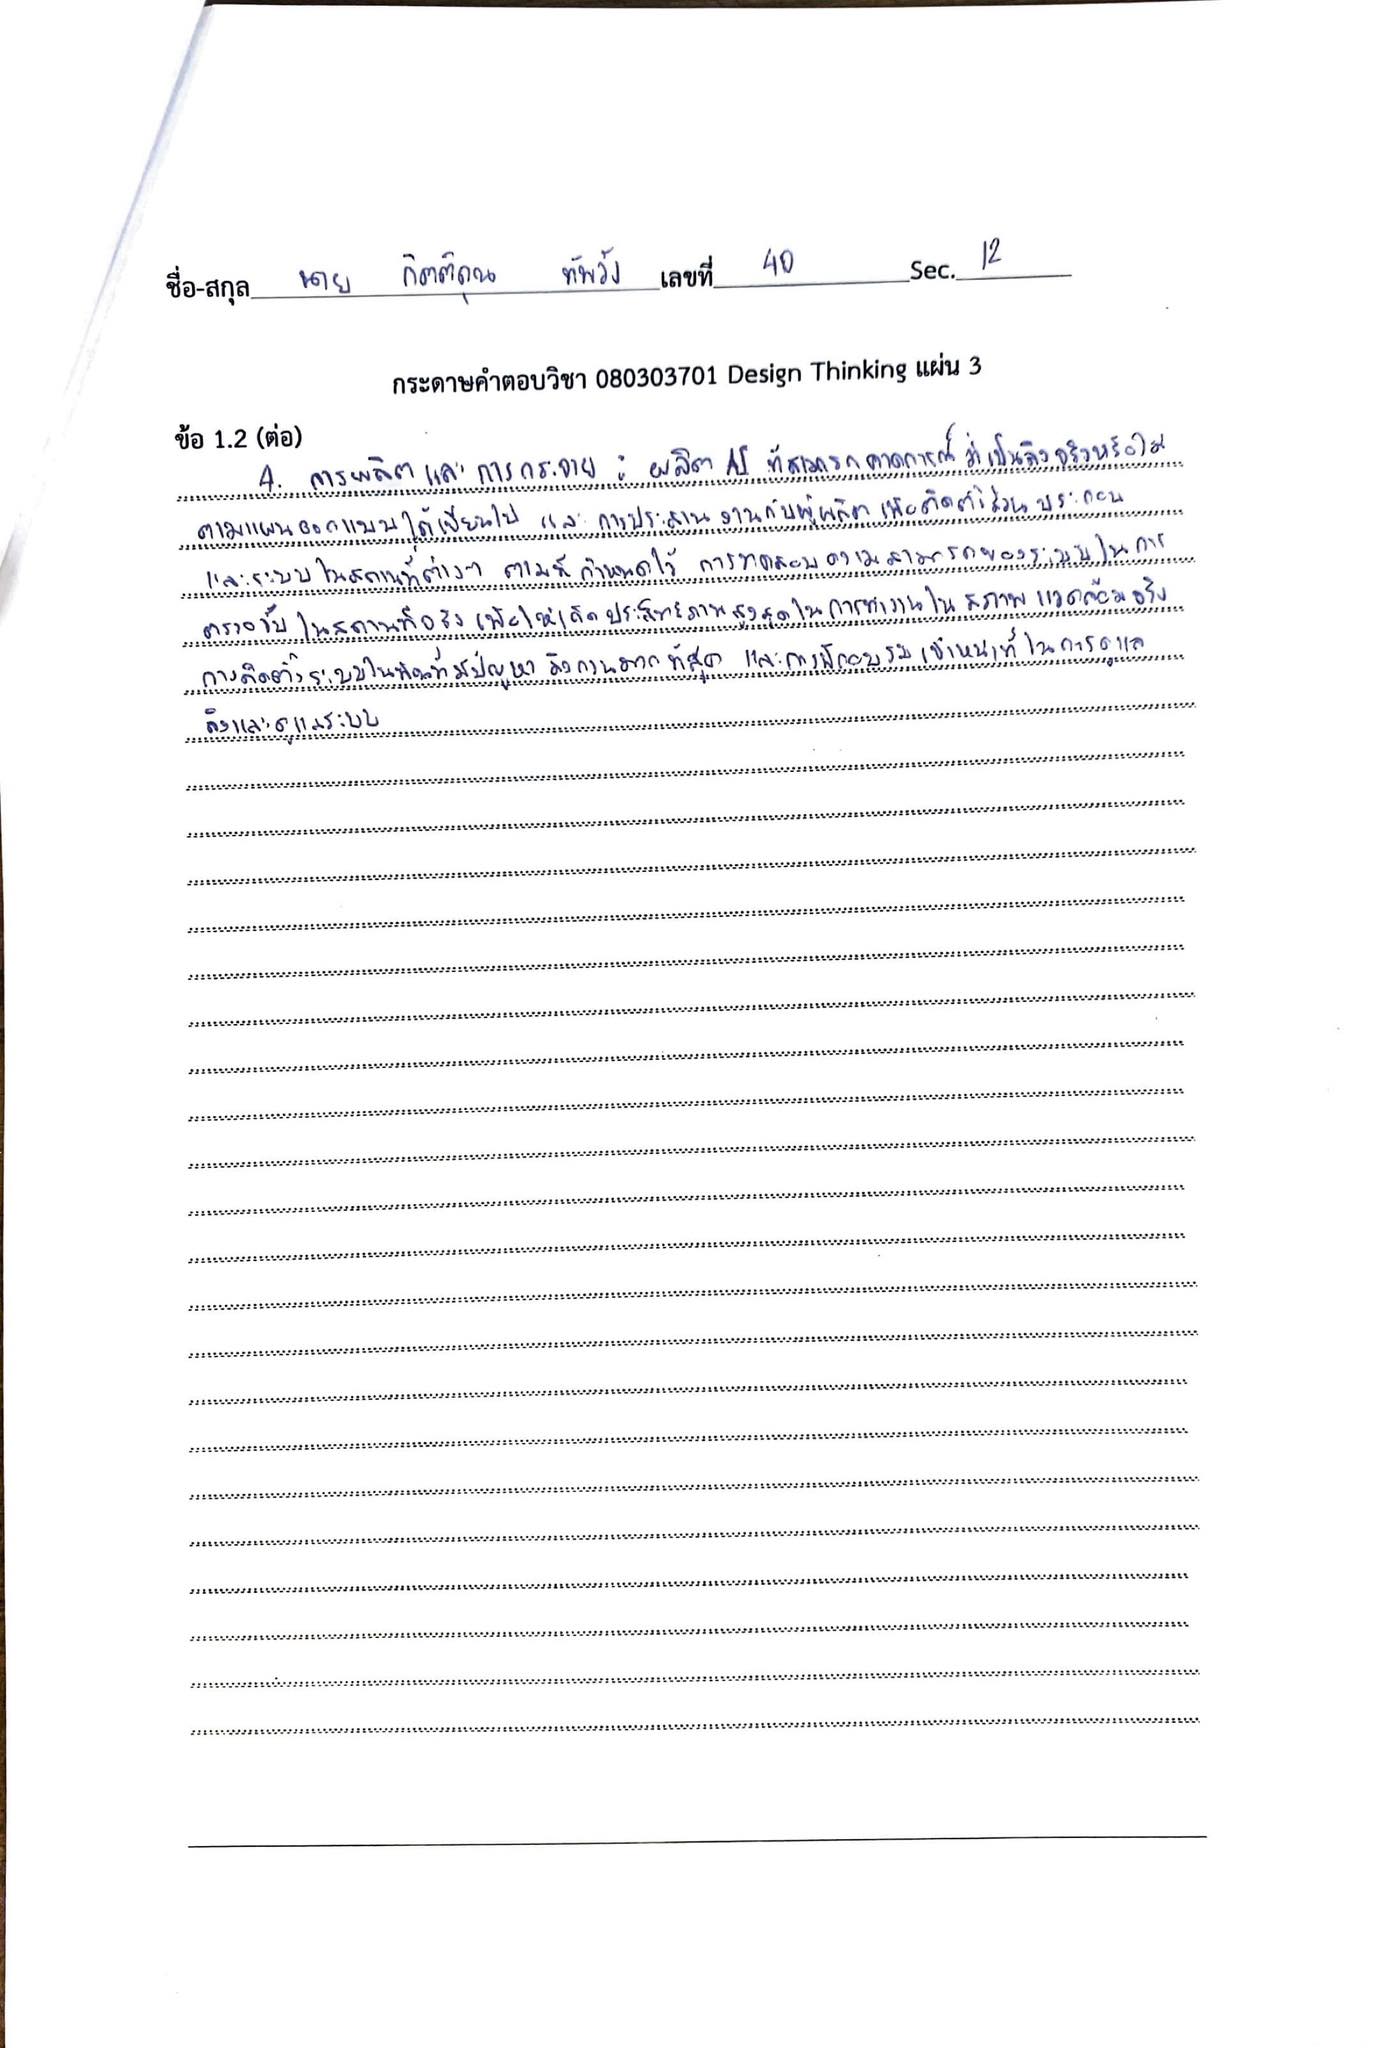 ชื่อ-สกุล นาย กิตติคุณ ทัพวัง เลขที่ 40 Sec. 12
กระดาษคำตอบวิชา 080303701 Design Thinking แผ่น 3
ข้อ 1.2 (ต่อ)
4. การผลิต และ การกระจาย : ผลิต AI ที่สามารถคาดการณ์ ว่าเป็นลิงจริงหรือไม่
ตามแผนออกแบบได้เขียนไป และ การประสานงานกับผู้ผลิต เพื่อติดตั้งส่วน ประกอบ
และระบบในสถานที่ต่างๆ ตามที่กำหนดไว้ การทดสอบความสามารถของระบบในการ
ตรวจจับ ในสถานที่จริง เพื่อให้เกิดประสิทธิภาพสูงสุดในการทำงานใน สภาพ แวดล้อมจริง
การติดตั้งระบบในพื้นที่มีปัญหา ลิงกวนมาก ที่สุด และการฝึกอบรม เจ้าหน้าที่ ในการดูแล
ลิงและดูแลระบบ